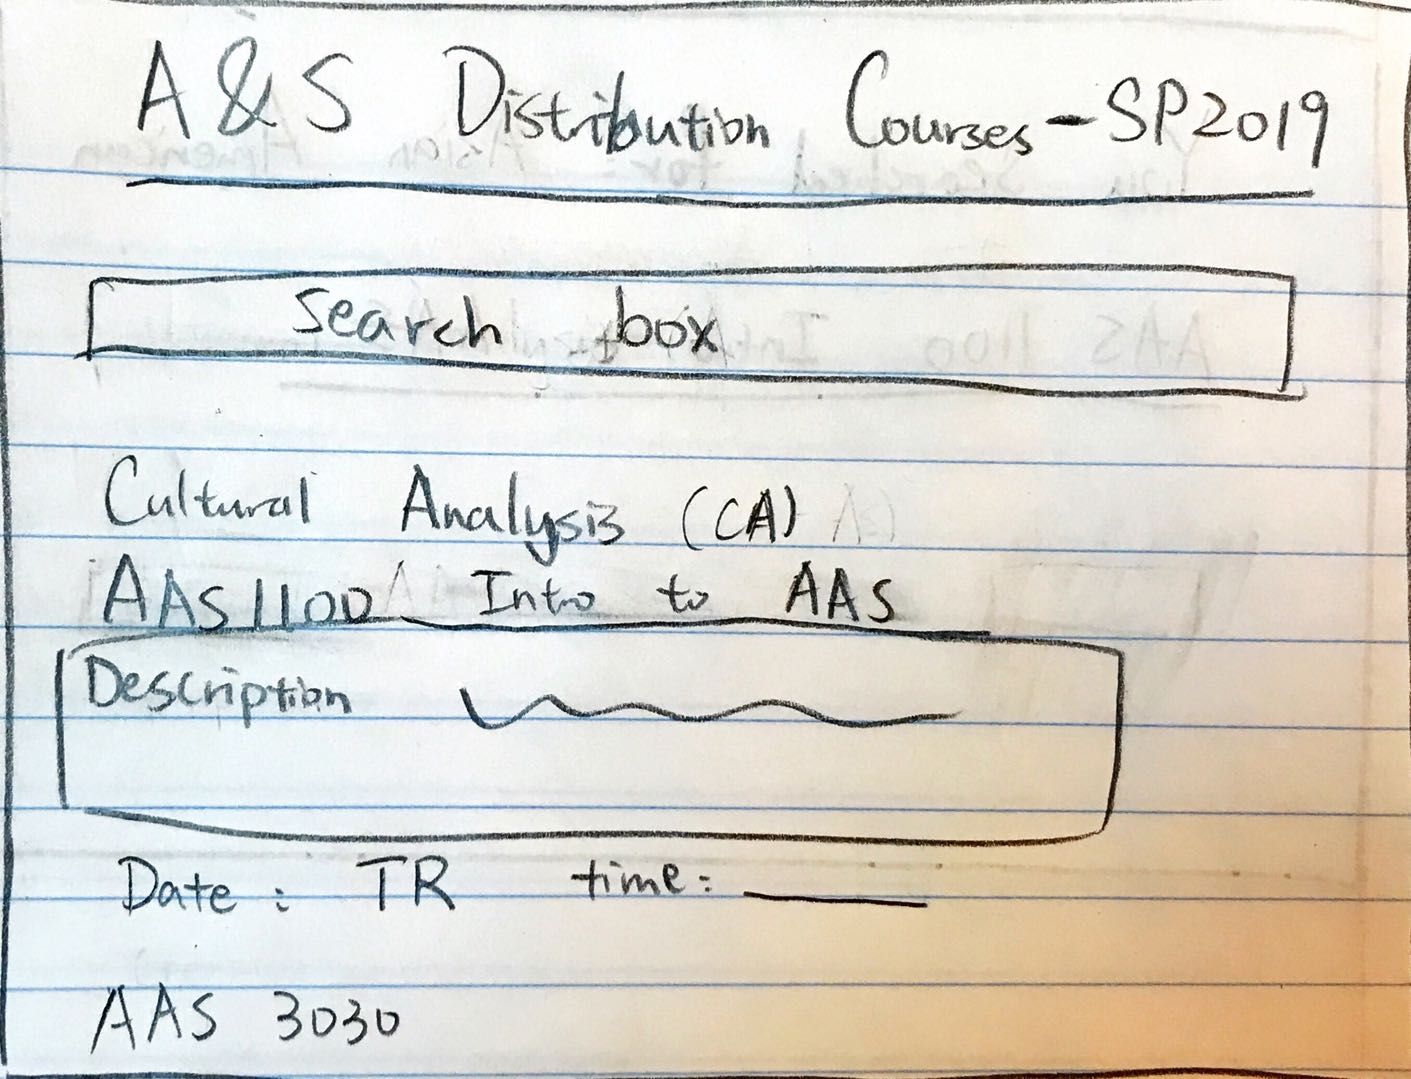 A&S Distribution Courses - SP2019
search box
Cultural Analysis (CA)
AAS 1100 Intro to AAS
Description
Date: TR time:
AAS 3030